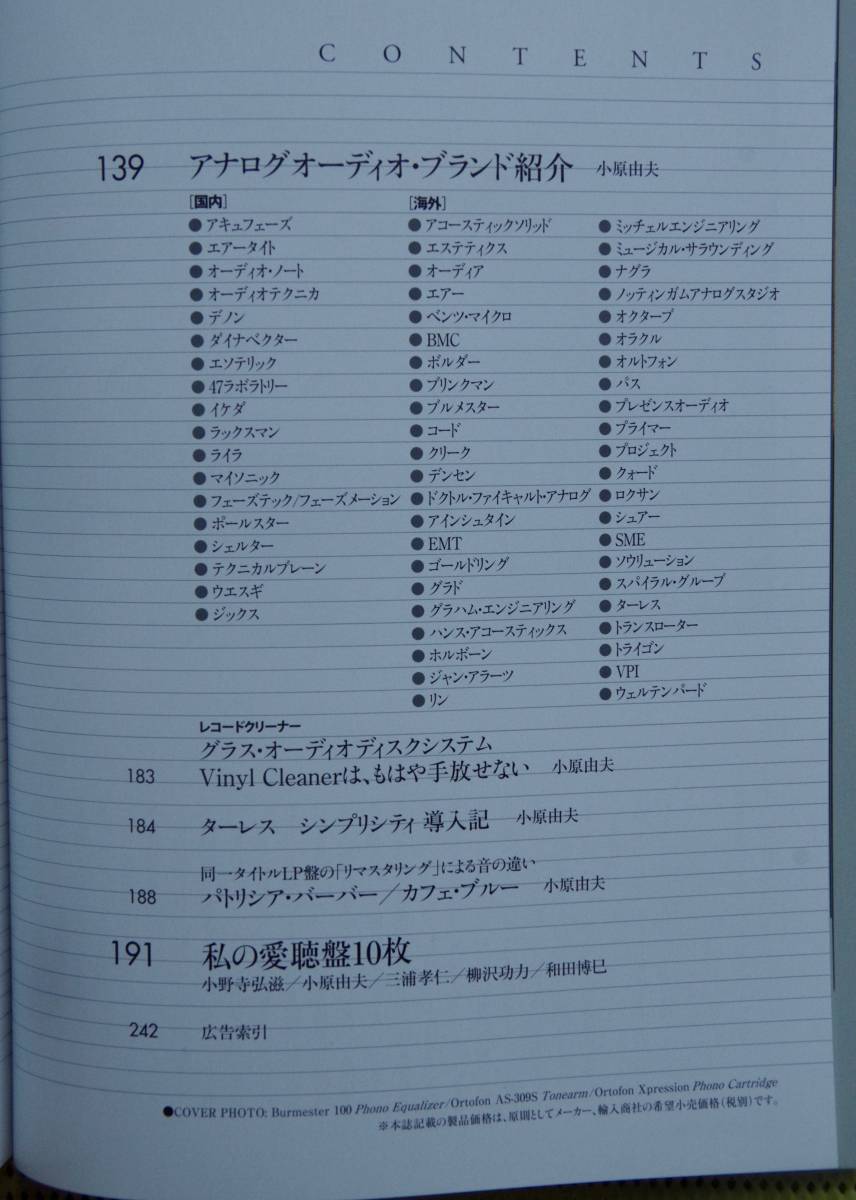 CONTENTS
139 アナログオーディオ・ブランド紹介 小原由夫
[国内]
●アキュフェーズ
●エアータイト
●オーディオ・ノート
●オーディオテクニカ
●デノン
●ダイナベクター
●エソテリック
●47ラボラトリー
●イケダ
●ラックスマン
●ライラ
●マイソニック
●フェーズテック/フェーズメーション
●ポールスター
●シェルター
●テクニカルブレーン
●ウエスギ
●ジックス
[海外]
●アコースティックソリッド
●エステティクス
●オーディア
●エアー
●ベンツ・マイクロ
●BMC
●ボルダー
●ブリンクマン
●ブルメスター
●コード
●クリーク
●デンセン
●ドクトル・ファイキャルト・アナログ
●アインシュタイン
●EMT
●ゴールドリング
●グラド
●グラハム・エンジニアリング
●ハンス・アコースティックス
●ホルボーン
●ジャン・アラーツ
●リン
●ミッチェルエンジニアリング
●ミュージカル・サラウンディング
●ナグラ
●ノッティンガムアナログスタジオ
●オクターブ
●オラクル
●オルトフォン
●パス
●プレゼンスオーディオ
●プライマー
●プロジェクト
●クォード
●ロクサン
●シュアー
●SME
●ソウリューション
●スパイラル・グルーブ
●ターレス
●トランスローター
●トライゴン
●VPI
●ウェルテンパード
レコードクリーナー
グラス・オーディオディスクシステム
183 Vinyl Cleanerは、もはや手放せない 小原由夫
184 ターレス シンプリシティ 導入記 小原由夫
同一タイトルLP盤の「リマスタリング」による音の違い
188 パトリシア・バーバー/カフェ・ブルー 小原由夫
191 私の愛聴盤10枚
小野寺弘滋/小原由夫/三浦孝仁/柳沢功力/和田博巳
242 広告索引
●COVER PHOTO: Burmester 100 Phono Equalizer/Ortofon AS-309S Tonearm/Ortofon Xpression Phono Cartridge
※本誌記載の製品価格は、原則としてメーカー、輸入商社の希望小売価格(税別)です。